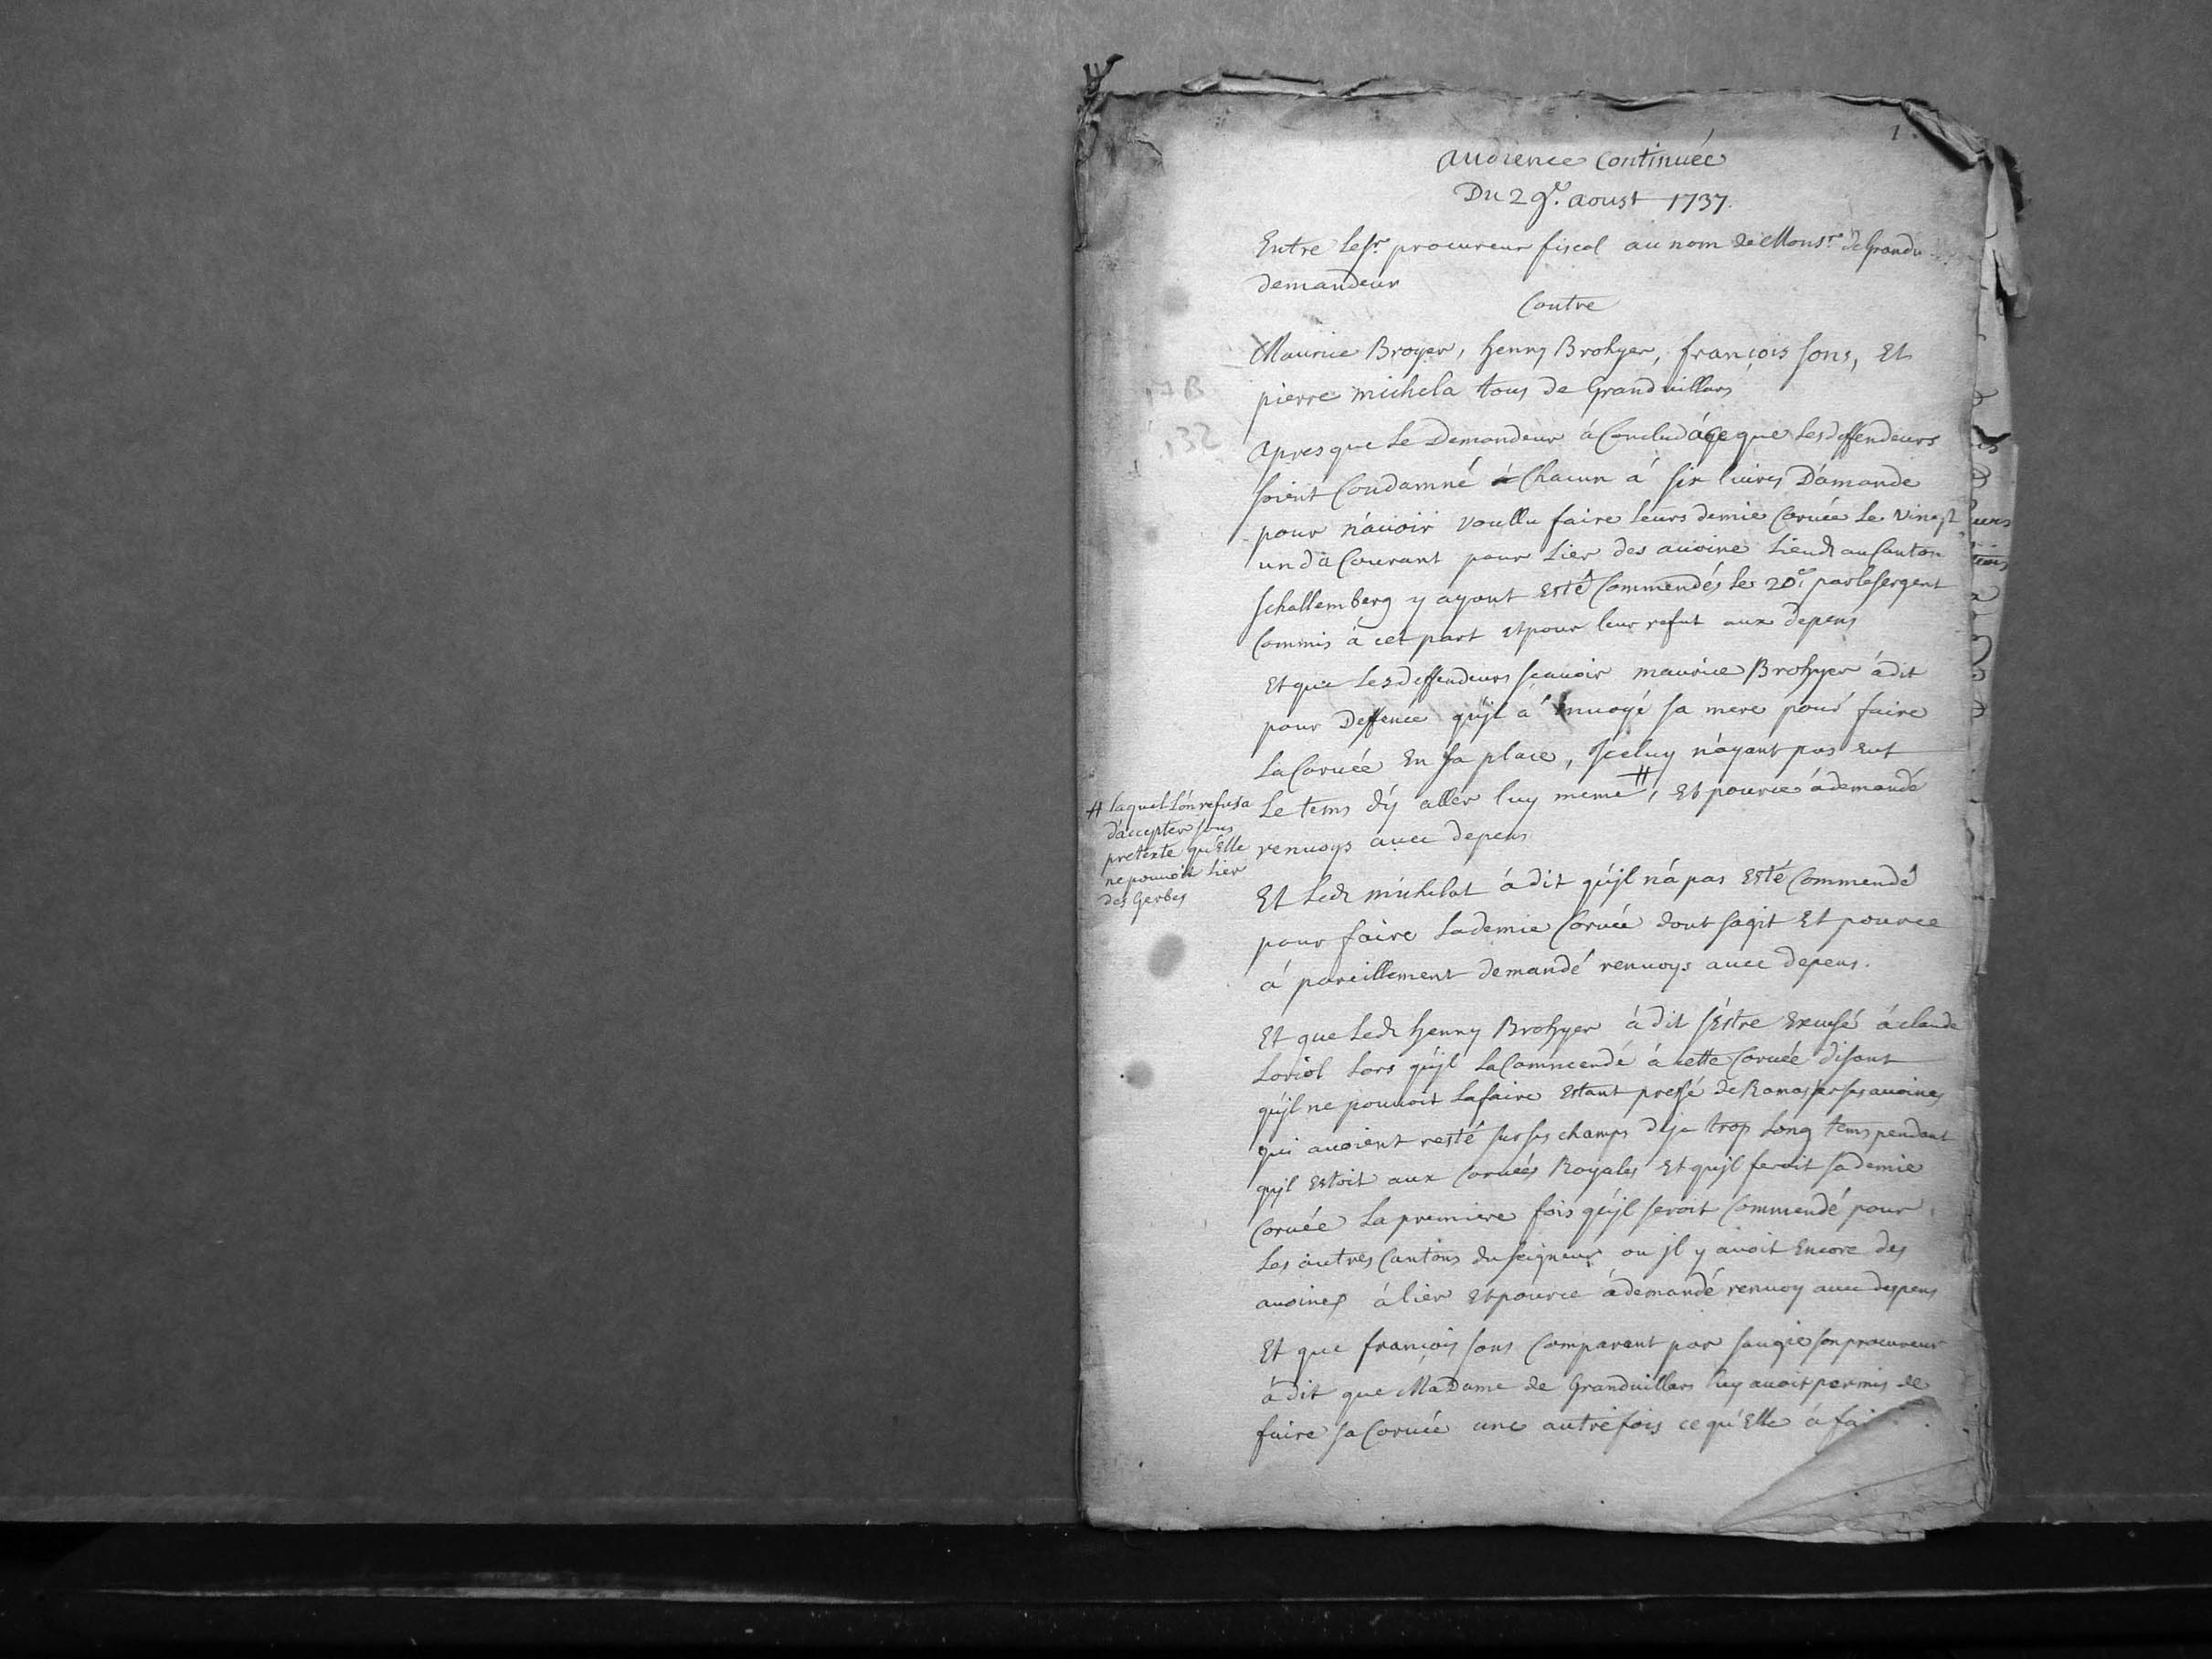 1.
Audience Continuée
Du 29e. aoust 1737.
Entre Le sr. procureur fiscal au nom de Monsr. de Grandu
demandeur
Contre
Maurice Broyer, henry Brohyer, françois sons, Et
pierre michela tous de Granduillars
Apres que Le Demandeur à Conclud áce que Les deffendeurs
soient Condamné á Chacun á six liures Dámande
pour n'áuoir voullu faire Leurs demie Coruée Le vingt
un du Courant pour Lier des auoine Lieudt au Canton
schallemberg y ayant Esté Commendés le 20e. par le sergent
Commis á cet part Et pour leur refut aux depens
Et que Les deffendeurs scauoir maurice Brohyer ádit
pour Deffence qu'jl á Enuoyé sa mere pour faire
La Coruée En sa place, Jceluy n'áyant pas eut
Le tems d'ý aller luy meme #, Et pource á demandé
renuoys auec depens
# laquel L'ón refusa
d'áccepter sous
pretexte qu'Elle
ne pouuoit Lier
des Gerbes
Et Ledt michelat á dit qu'jl ná pas Esté Commendé
pour faire La demie Coruée dont sagit Et pource
á pareillement demandé renuoys auec depens.
Et que Ledt henry Brohyer á dit s'Estre Excusé á claude
Loriol Lors qu'jl La Commendé á cette Coruée disant
qu'jl ne pouuoit La faire Estant pressé de Ramasser ses auoines
qui auoient resté sur ses champs deja trop Long tems pendant
qu'jl Estoit aux Coruées Royales Et qu'jl feroit sa demie
Coruée La premiere fois qu'jl seroit Commendé pour
Les autres Cantons du seigneur ou jl y auoit Encore des
auoines á lier Et pource á demandé renuoy auec depens
Et que françois sons Comparent par saugie son procureur
á dit que Madame de Granduillars luy auoit permis de
faire sa Coruée une autre fois ce qu'Elle á fai